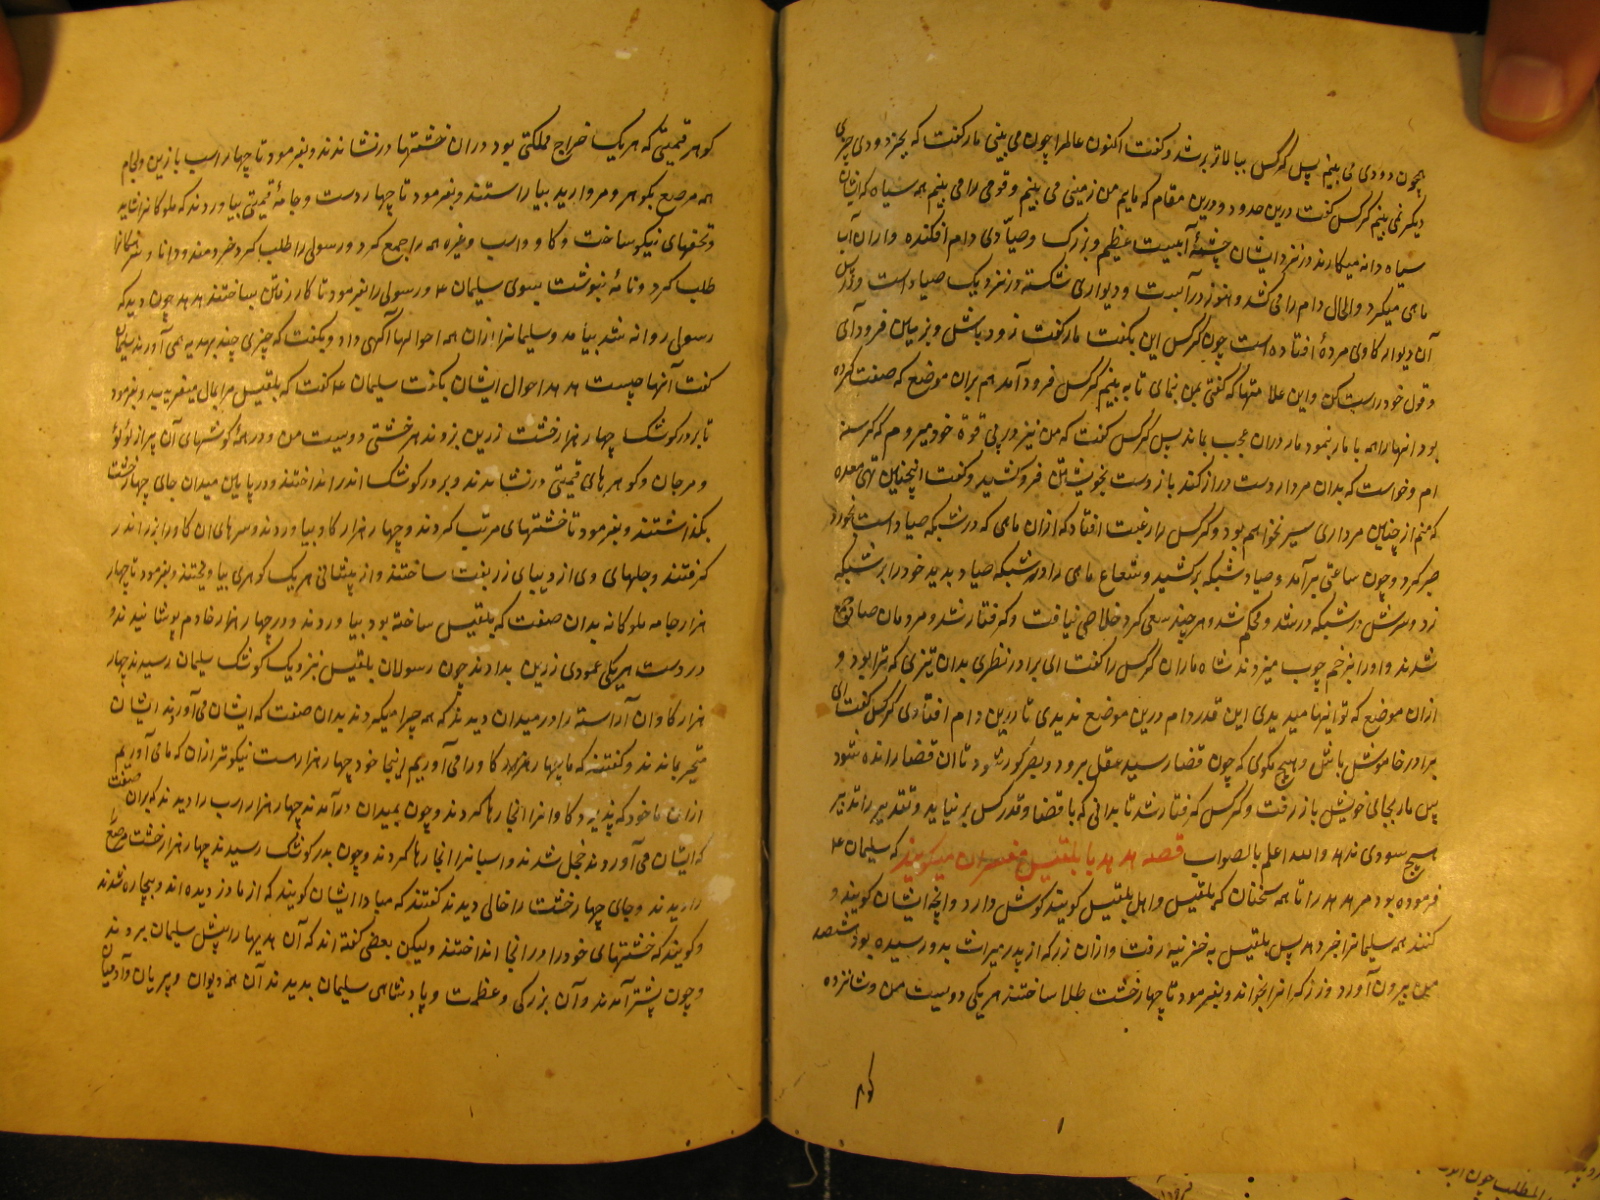 همچون دودی می بینم پس کرکس ببالاتر بر شد و کفت اکنون عالم را چون می بینی مار کفت که بجز دودی چیزی
دیکر نمی بینم کرکس کفت درین حدود و درین مقام که مایم من زمینی می بینم و قومی را می بینم همه سیاه که ایشان
سیاه دانه میکارند و نزد ایشان چشمهٔ آبیست عظیم و بزرک و صیادی دام افکنده و از آن آب
ماهی میکیرد و الحال دام را می کشد و هنوز در آبست و دیواری شکسته در نزدیک صیاد است و در پس
آن دیوار کاوی مردهٔ افتاده است چون کرکس این بکفت مار کفت زود باش و بزمین فرود آی
و قول خود راست کن و این علامتها که کفتی بمن نمای تا به بینم کرکس فرود آمد هم بران موضع که صفت کرده
بود آنها را همه با مار نمود مار دران عجب بماند پس کرکس کفت که من نیز در پی قوة خود میروم که کرسنه
ام و خواست که بدان مردار دست دراز کند باز دست بخویشتن فروکشید و کفت اینچنین تهی معده
که منم از چنین مرداری سیر نخواهم بود و کرکس را رغبت افتاد که ازان ماهی که در شبکه صیاد است بخورد
صبر کرد و چون ساعتی برآمد و صیاد شبکه برکشید و شعاع ماهی را در شبکه صیاد بدید خود را بر شبکه
زد و سرش در شبکه در شد و محکم شد و هر چند سعی کرد خلاصی نیافت و کرفتار شد و مردمان صیاد جمع
شدند و او را بزخم چوب میزدند شاه ماران کرکس را کفت ای برادر نظری بدان تیزی که ترا بود و
ازان موضع که تو اینها میدیدی این قدر دام درین موضع ندیدی تا درین دام افتادی کرکس کفت ای
برادر خاموش باش و هیچ مکوی که چون قضا رسید عقل برود و بصر کور شود تا ان قضا رانده شود
پس مار بجای خویش باز رفت و کرکس کرفتار شد تا بدانی که با قضا و قدر کس بر نیاید و تقدیر را تدبیر
هیچ سودی ندهد والله اعلم بالصواب قصه هدهد با بلقیس مفسران میکویند که سلیمان ع
فرموده بود مر هدهد را تا همه سخنان که بلقیس و اهل بلقیس کویند کوش دارد و آنچه ایشان کویند و
کنند همه سلیمانرا خبر دهد پس بلقیس به خزینه رفت و ازان زر که از پدر میراث بدو رسیده بود ششصد
من بیرون آورد و زرکرانرا بخواند و بفرمود تا چهار خشت طلا ساختند هر یکی دویست من و شانزده
کوهر
کوهر قیمتی که هر یک خراج مملکتی بود دران خشتها درنشاندند و بفرمود تا چهار اسب با زین و لجام
همه مرصع بکوهر و مروارید بیاراستند و بفرمود تا چهار دست و جامهٔ قیمتی بیاوردند که ملوکانرا شاید
و تحفهای نیکو ساخت و کاو و اسب و غیره همه را جمع کرد و رسولی را طلب کرد خردمند و دانا و
طلب کرد و نامهٔ نبوشت بسوی سلیمان ع و رسولی را بفرمود تا کار رفتن بساختند هدهد چون دید که
رسولی روانه شد بیامد و سلیمانرا ازان همه احوالها آکهی داد و بکفت که چیزی چند بهدیه همی آورند سلیمان
کفت آنها چیست هدهد احوال ایشان بکفت سلیمان ع کفت که بلقیس مرا بمال میفریبد و بفرمود
تا بر در کوشک چهار هزار خشت زرین بزوند هر خشتی دویست من و در همهٔ کوشهای آن پر از لؤلؤ
و مرجان و کوهرهای قیمتی درنشاندند و بر در کوشک اندر انداختند و در پایین میدان جای چهار خشت
بکذاشتند و بفرمود تا خشتهای مرتب کردند و چهار هزار کاو بیاوردند و سرهای ان کاو را بزر اندر
کرفتند و جلهای وی از دیبای زربفت ساختند و از پیشانی هر یک کوهری بیاویختند و بفرمود تا چهار
هزار جامه ملوکانه بدان صفت که بلقیس ساخته بود بیاوردند و در چهار هزار خادم پوشانیدند و
در دست هر یکی عمودی زرین بدادند چون رسولان بلقیس نزدیک کوشک سلیمان رسیدند چهار
هزار کاوان آراسته را در میدان دیدند که همه چرا میکردند بدان صفت که ایشان می آوردند ایشان
متحیر بماندند و کفتند که ما چهار کاو را می آوریم اینجا خود چهار هزار است نیکوتر ازان که ما می آوریم
از این ما خود که پذیرد کاوانرا انجا رها کردند و چون بمیدان درآمدند چهار هزار اسب را دیدند که بران صفت
که ایشان می آوردند خجل شدند و اسبانرا انجا رها کردند و چون بدر کوشک رسیدند چهار هزار خشت مرصع
را دیدند و جای چهار خشت را خالی دیدند کفتند که مبادا ایشان کویند که از ما دزدیده اند و بیچاره شدند
و کویند که خشتهای خود را در انجا انداختند و لیکن بعضی کفته اند که آن هدیها را پیش سلیمان بردند
و چون پیشتر آمدند و آن بزرکی و عظمت و پادشاهی سلیمان بدیدند آن همه دیوان و پریان و آدمیان